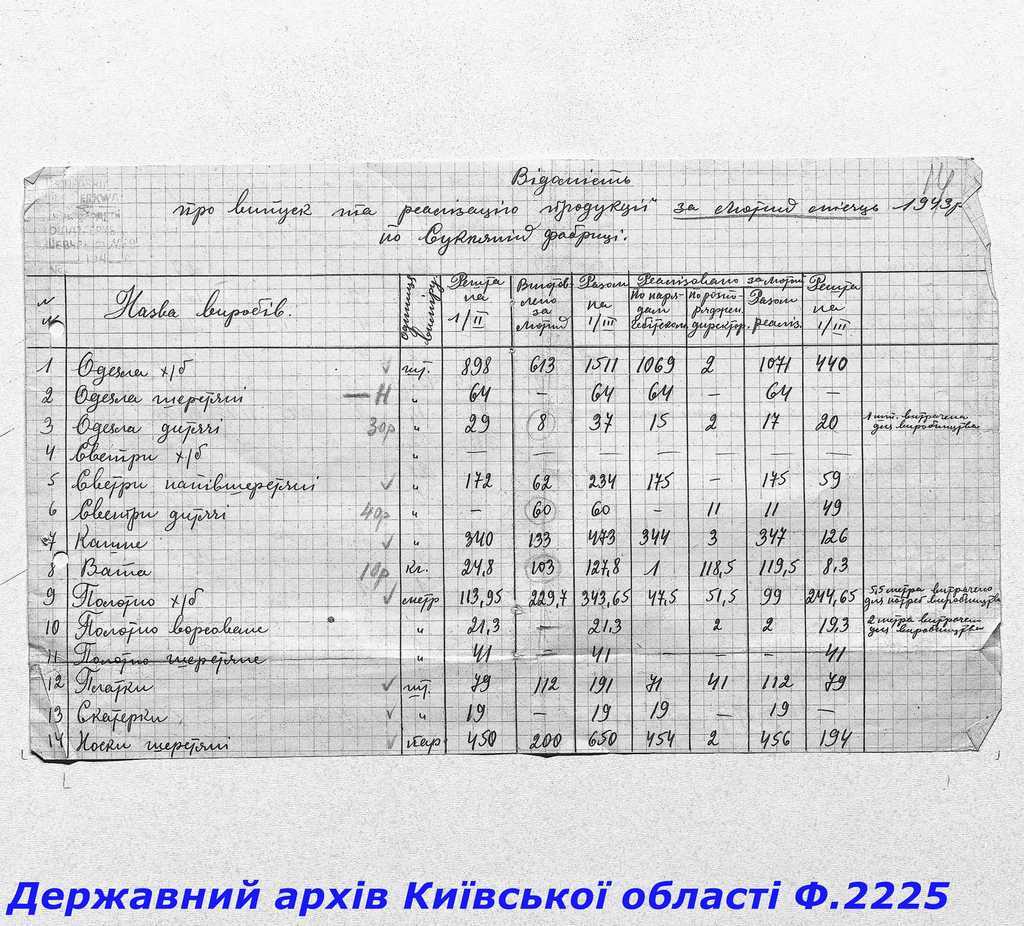 14
Відомість
про випуск та реалізацію продукції за лютий місяць 1943 р.
по Сукняній фабриці.
№ № Назва виробів. одиниця виміру. Решта на 1/II Виготовлено за лютий Разом на 1/III Реалізовано за лютий Решта на 1/III
По нарядам По розпоряджен. директор. Разом реаліз.
1 Одеяла х/б шт. 898 613 1511 1069 2 1071 440
2 Одеяла шерстяні — Н " 64 – 64 64 – 64 –
3 Одеяла дитячі 30р " 29 8 37 15 2 17 20 1 шт. витрачена для виробництва
4 Светри х/б " — — — — — — —
5 Светри напівшерстяні " 172 62 234 175 – 175 59
6 Светри дитячі 40р " – 60 60 – 11 11 49
7 Кашне " 340 133 473 344 3 347 126
8 Вата 10р кг. 24,8 103 127,8 1 118,5 119,5 8,3
9 Полотно х/б метр 113,95 229,7 343,65 47,5 51,5 99 244,65 55 метра витрачено для потреб виробництва
10 Полотно ворсоване " 21,3 — 21.3 2 2 19,3 2 метра витрачен для виробництва
11 Полотно шерстяне " 41 – 41 – – – 41
12 Платки шт. 79 112 191 71 41 112 79
13 Скатерки " 19 – 19 19 – 19 –
14 Носки шерстяні пар 450 200 650 454 2 456 194
Державний архів Київської області Ф.2225